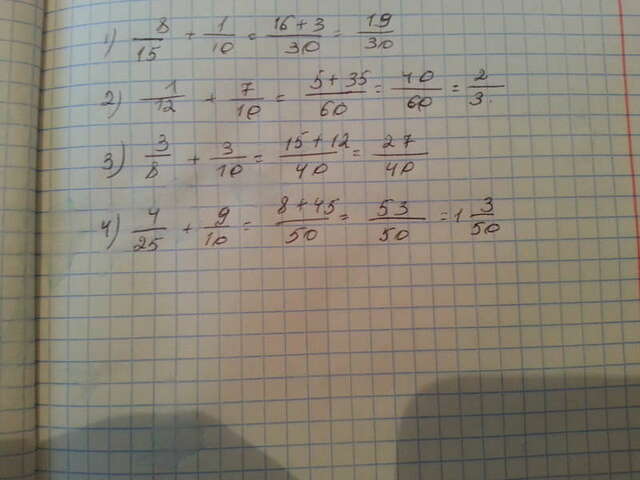 1) 8/15 + 1/10 = 16+3/30 = 19/30
2) 1/12 + 7/10 = 5+35/60 = 40/60 = 2/3.
3) 3/8 + 3/10 = 15+12/40 = 27/40
4) 4/25 + 9/10 = 8+45/50 = 53/50 = 1 3/50